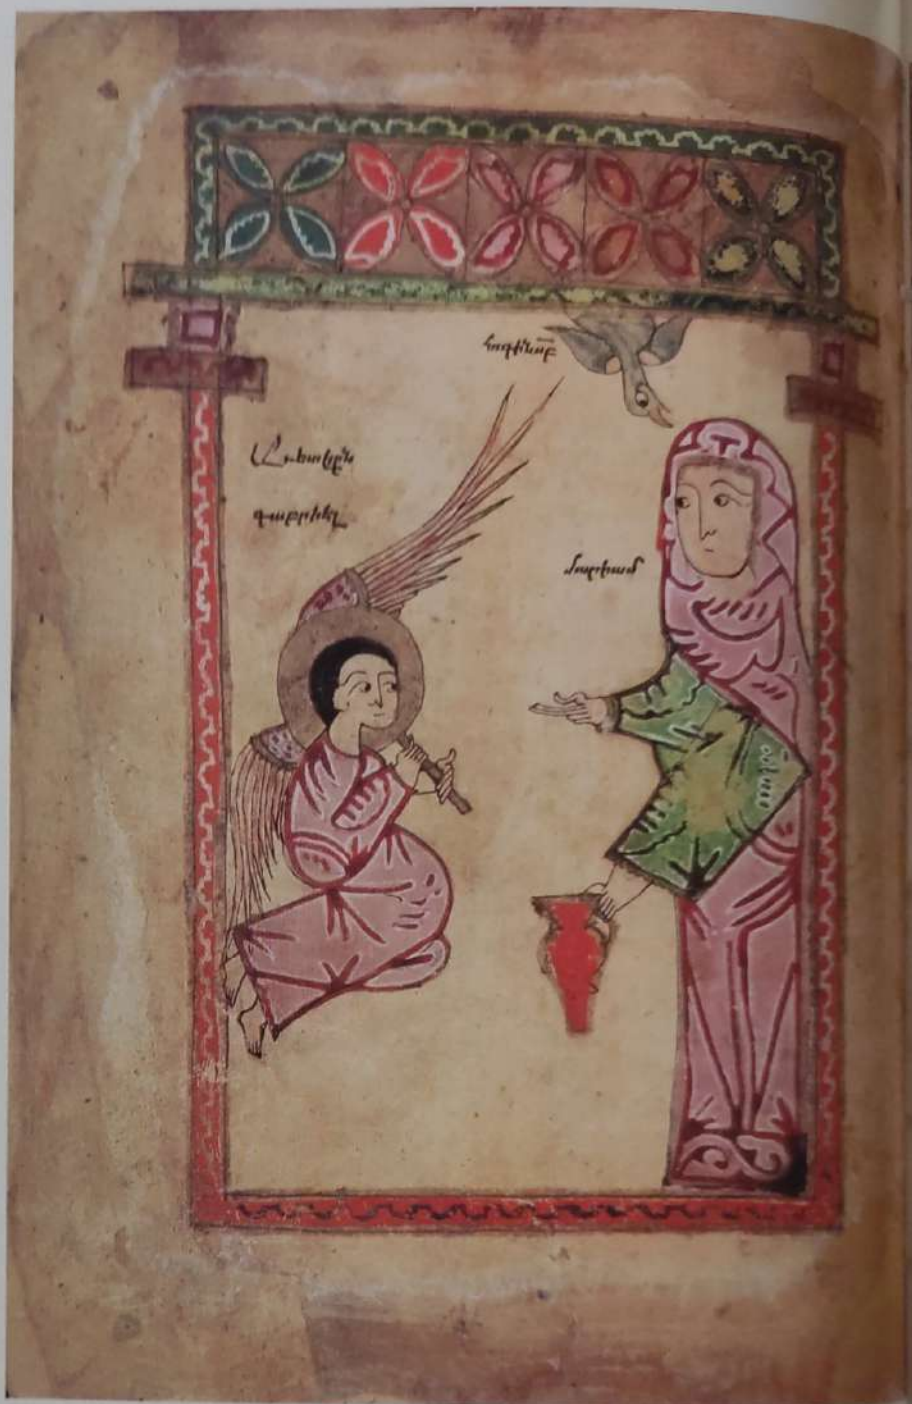 հոգին սբ
Աւետանքն
գաբրիէլ
մարիամ